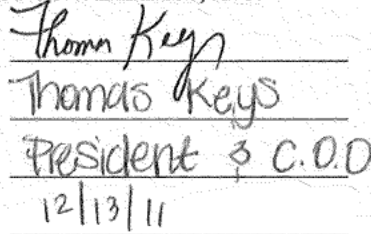 Thomas Keys
Thomas Keys
President & C.O.O
12/13/11